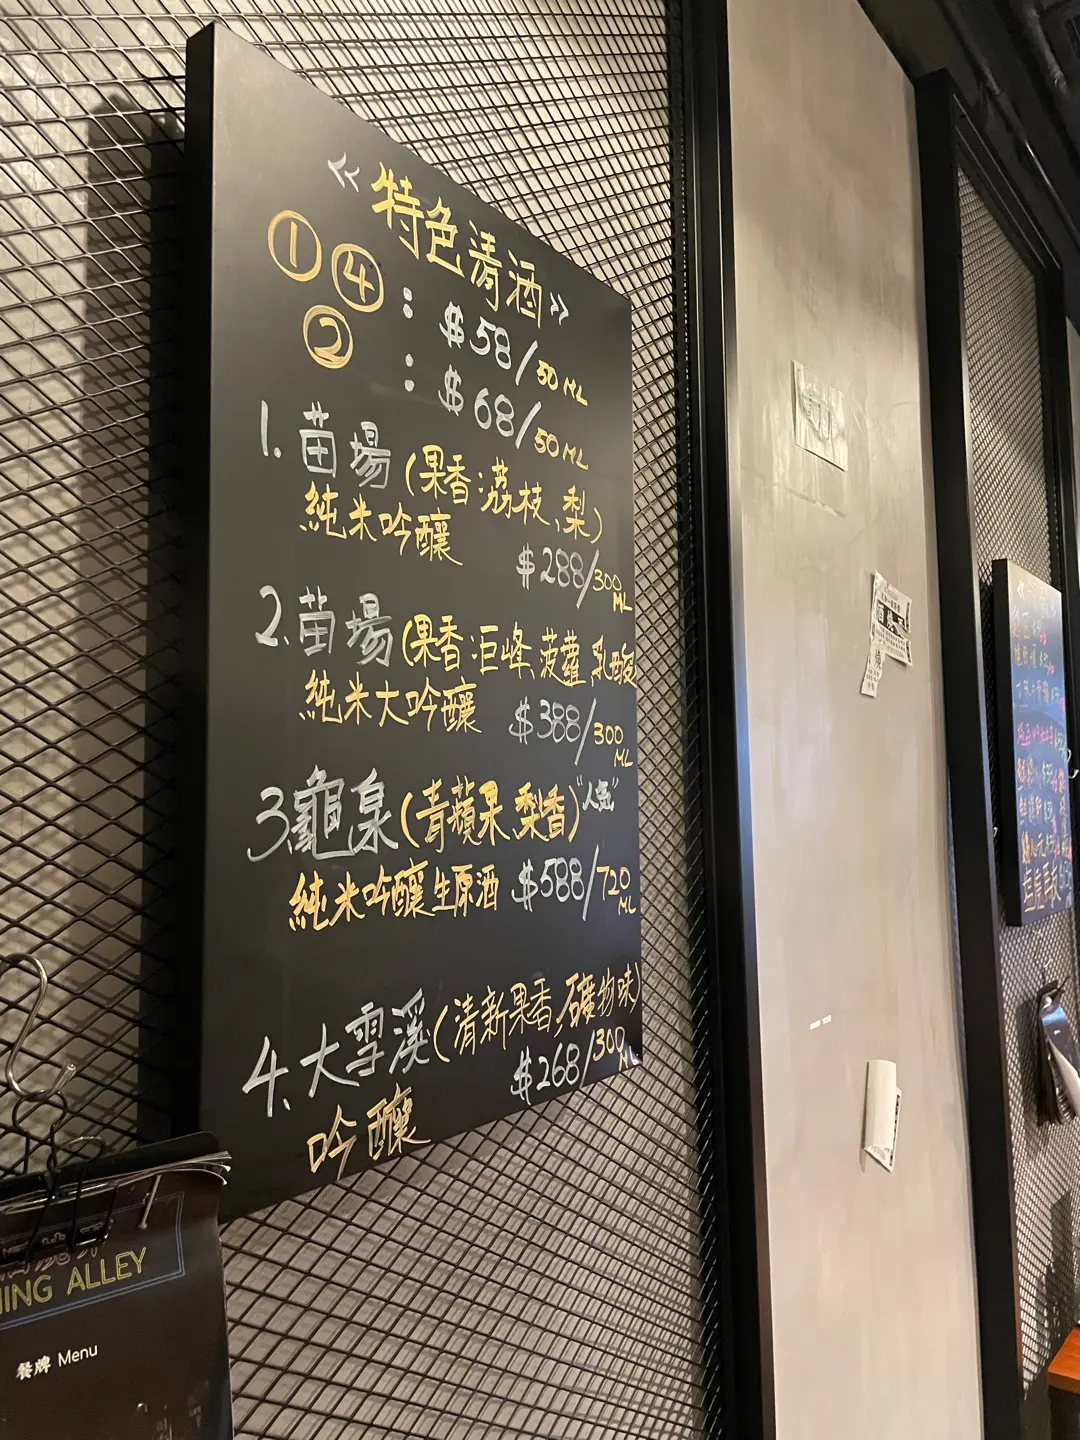 《特色清酒》
① ④ : $58/50ML
② : $68/50ML
1. 苗場 (果香:荔枝、梨)
純米吟釀 $288/300ML
2. 苗場 (果香:巨峰、菠蘿、乳酸)
純米大吟釀 $388/300ML
3. 龜泉 (青蘋果、梨香) "人気"
純米吟釀生原酒 $588/720ML
4. 大雪溪 (清新果香、礦物味)
吟釀 $268/300ML
ING ALLEY
餐牌 Menu